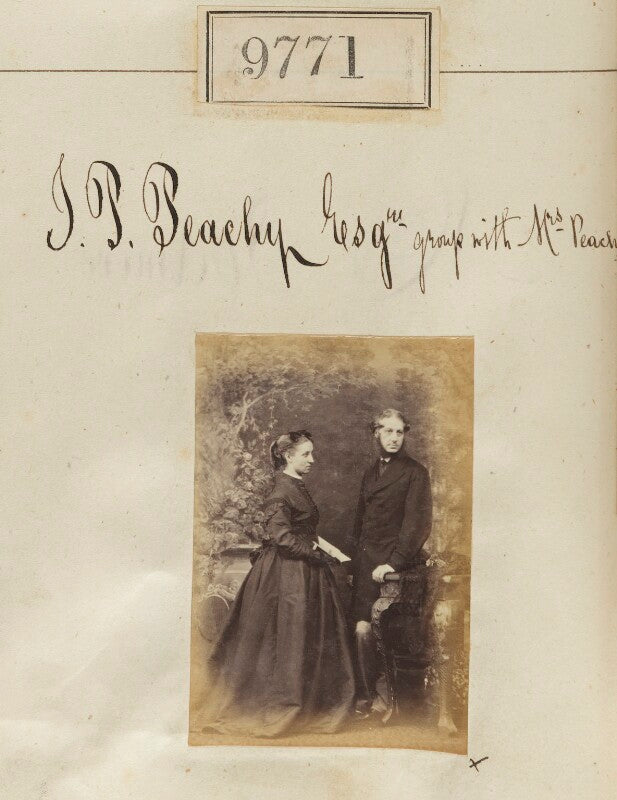 9771
J. P. Peachy Esqre group with Mrs Peachy